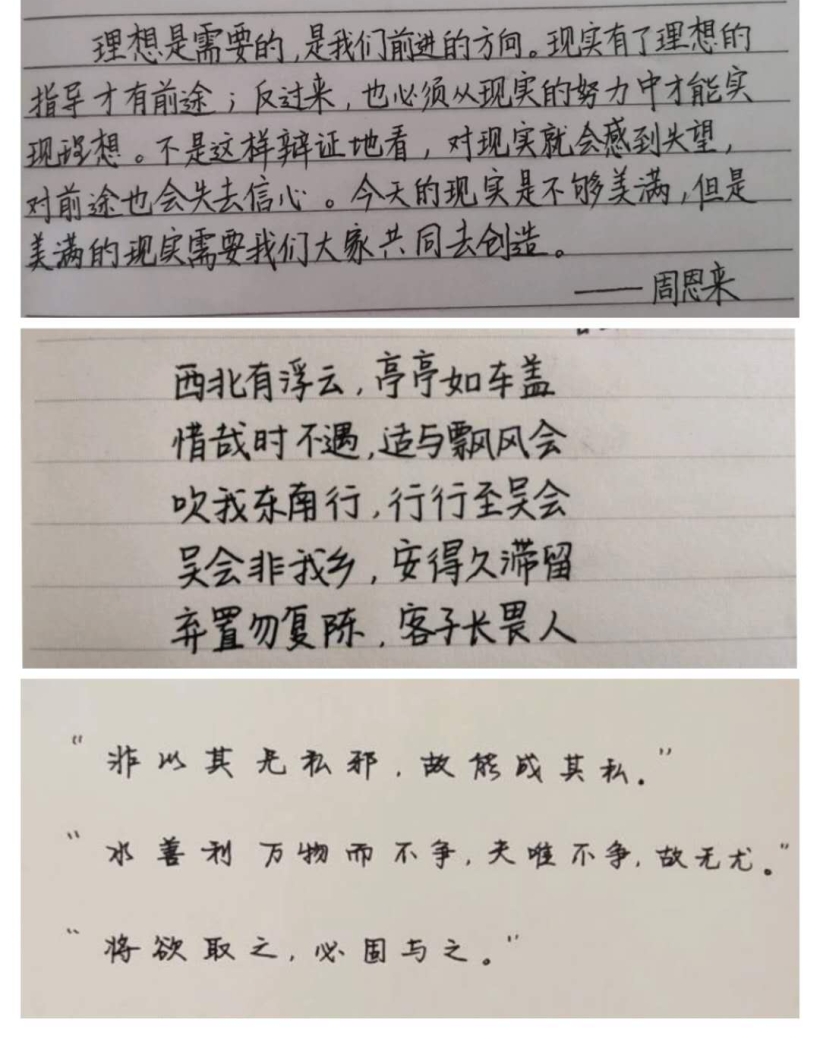 理想是需要的,是我们前进的方向。现实有了理想的
指导才有前途；反过来,也必须从现实的努力中才能实
现理想。不是这样辩证地看,对现实就会感到失望,
对前途也会失去信心。今天的现实是不够美满,但是
美满的现实需要我们大家共同去创造。
——周恩来
西北有浮云,亭亭如车盖
惜哉时不遇,适与飘风会
吹我东南行,行行至吴会
吴会非我乡,安得久滞留
弃置勿复陈,客子长畏人
“非以其无私邪,故能成其私.”
“水善利万物而不争,夫唯不争,故无尤。”
“将欲取之,必固与之。”